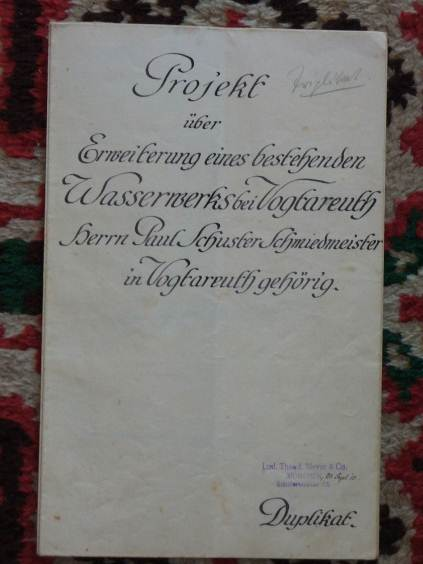 Projekt
über
Erweiterung eines bestehenden
Wasserwerks bei Vogtareuth
Herrn Paul Schuster Schmiedmeister
in Vogtareuth gehörig.
& Co.
MÜNCHEN,
Duplikat.